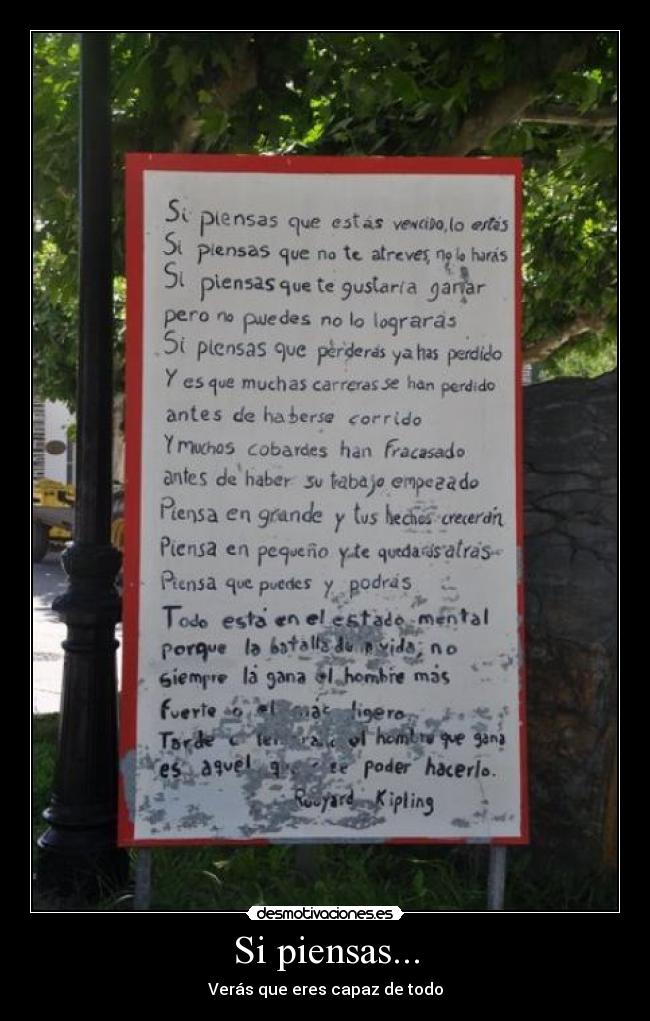 Si piensas que estás vencido, lo estás
Si piensas que no te atreves, no lo harás
Si piensas que te gustaría ganar
pero no puedes no lo lograrás
Si piensas que perderás ya has perdido
Y es que muchas carreras se han perdido
antes de haberse corrido
Y muchos cobardes han fracasado
antes de haber su trabajo empezado
Piensa en grande y tus hechos crecerán
Piensa en pequeño y te quedarás atrás
Piensa que puedes y podrás
Todo está en el estado mental
porque la batalla de vida, no
siempre la gana el hombre más
fuerte o el más ligero
Tarde o el hombre que gana
es aquel poder hacerlo.
Rudyard Kipling
desmotivaciones.es
Si piensas...
Verás que eres capaz de todo